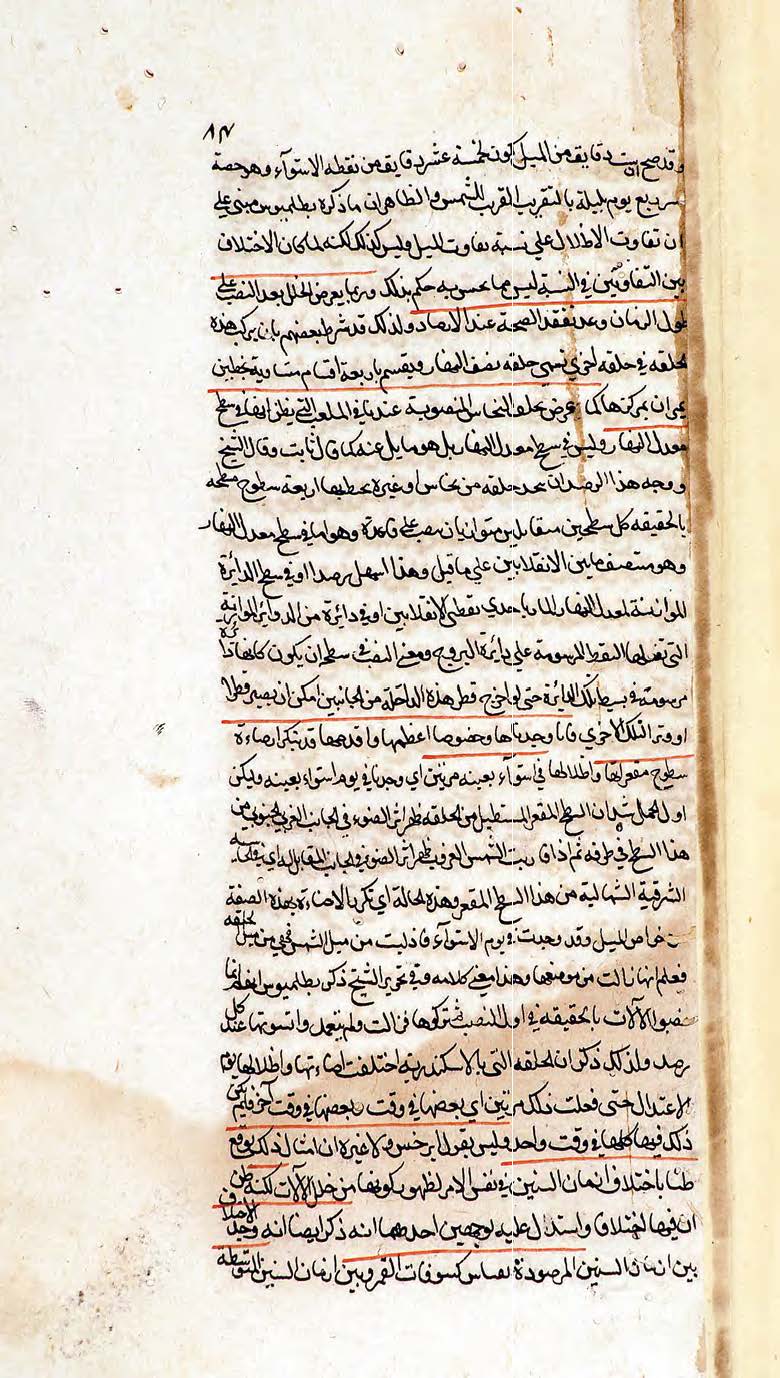 ٨٣
وقد صح ان ست دقايق من الميل كون لخمسة عشر دقايق من نقطه الاستوآء وهو حصة
ربع يوم بليلة بالتقريب القرب الشمس والظاهر ان ما ذكره بطلميوس مبني علي
ان تفاوت الاطلال علي نسبة تفاوت الميل وليس كذلك لكنه لما كان الاختلاف
بين التفاوتين في النسبة ليس مما يحس به حكم بذلك وربما يعرض الخلل بعد النصب علي
طول الزمان وعد تفقد الصحة عند الارصاد ولذلك قد شرط بعضهم بان يركب هذه
الحلقه في حلقه اخري تسمي حلقه نصف النهار ويقسم باربعة اقسام متساوية بخطين
يمران بمركزها كما عرض لحلقه النحاس المنصوبة عندنا في الملعب التي يظن انها في سطح
معدل النهار وليس في سطح معدل النهار بل هو مايل عنه كما قال ثابت وقال الشيخ
ووجه هذا الرصد ان يتخذ حلقه من نحاس او غيره يحيط بها اربعة سطوح مسطحه
بالحقيقه كل سطحين متقابلين متوازيان ينصب علي قاعدة وهو اما في سطح معدل النهار
وهو منتصف ما بين الانقلابين علي ما قيل وهذا اسهل رصدا او في سطح الدائرة
الموازية لمعدل النهار المار باحدي نقطتي الانقلابين او في دائرة من الدوائر الموازية
التي تفعلها النقط المرسومة علي دائرة البروج ومعني النصب في سطح ان يكون كانها دائرة
مرسومة في بسيط تلك الدائرة حتى لو اخرج قطر هذه الداخلة من الجانبين امكن ان يصير قطرا
او وترا لتلك الاخري فانا وجدناها وخصوصا اعظمها واقدمها قد يتكرر اضاءة
سطوح مقعراتها واظلالها في استوآء بعينه مرتين اي وجدنا في يوم استواء بعينه وليكن
اول الحمل مثلا ان السطح المقعر المستطيل من الحلقه ظهر اثر الضوء في الجانب الغربي الجنوبي من
هذا السطح في طرفه ثم اذا قاربت الشمس الغروب ظهر اثر الضوء في الجانب المقابل له اي في
الشرقية الشمالية من هذا السطح المقعر وهذه الحالة اي تكرر الاضاءة بهذه الصفة
من خواص الميل وقد وجدت في يوم الاستوآء فاذ ليست من ميل الشمس فهي من ميل الحلقه
فعلم انها زالت من موضعها وهذا معني كلامه وفي تحرير الشيخ ذكر بطلميوس انهم انما
نصبوا الآلات بالحقيقه في اول النصب ثم تركوها فزالت ولم يتعمدوا تسويتها عند كل
رصد ولذلك ذكر ان الحلقه التي بالاسكندرية اختلفت اضاءتها واظلالها يوم
الاعتدال حتي فعلت ذلك مرتين اي بعضها في وقت وبعضها في وقت آخر فلم يكن
ذلك فيها كلها في وقت واحد وليس يقول ابرخس ولا غيره ان امثال ذلك يوقع
ظنا باختلاف ازمان السنين في نفس الامر لظهور كونها من خلل الآلات لكنه ظن
ان فيها اختلاف واستدل عليه بوجهين احدهما انه ذكر ايضا انه وجد الاختلاف
بين ازمان السنين المرصودة بقياس كسوفات القمر وبين ازمان السنين المتوسطة